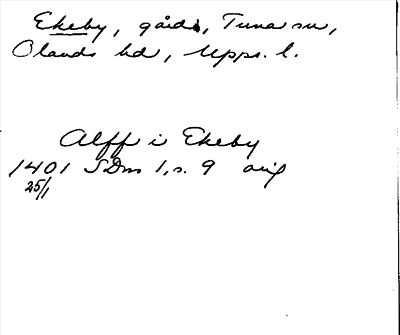 Ekeby, gård, Tuna sn,
Olands hd, Upps. l.
Alff i Ekeby
1401 SDns 1, s. 9 orig
25/1